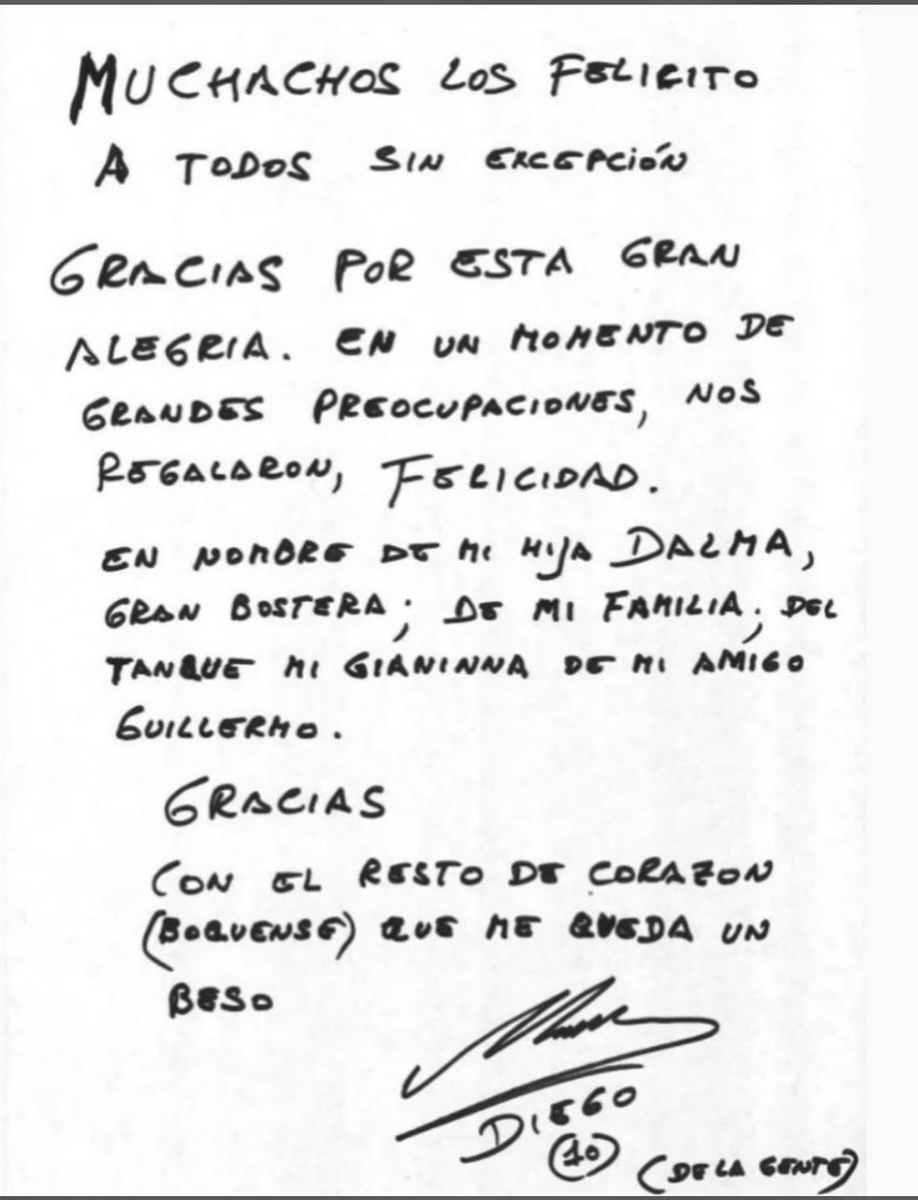 MUCHACHOS LOS FELICITO
A TODOS SIN EXCEPCIÓN
GRACIAS POR ESTA GRAN
ALEGRIA. EN UN MOMENTO DE
GRANDES PREOCUPACIONES, NOS
REGALARON, FELICIDAD.
EN NOMBRE DE MI HIJA DALMA,
GRAN BOSTERA; DE MI FAMILIA; DEL
TANQUE MI GIANINNA DE MI AMIGO
GUILLERMO.
GRACIAS
CON EL RESTO DE CORAZON
(BOQUENSE) QUE ME QUEDA UN
BESO
DIEGO
10
(DE LA GENTE)